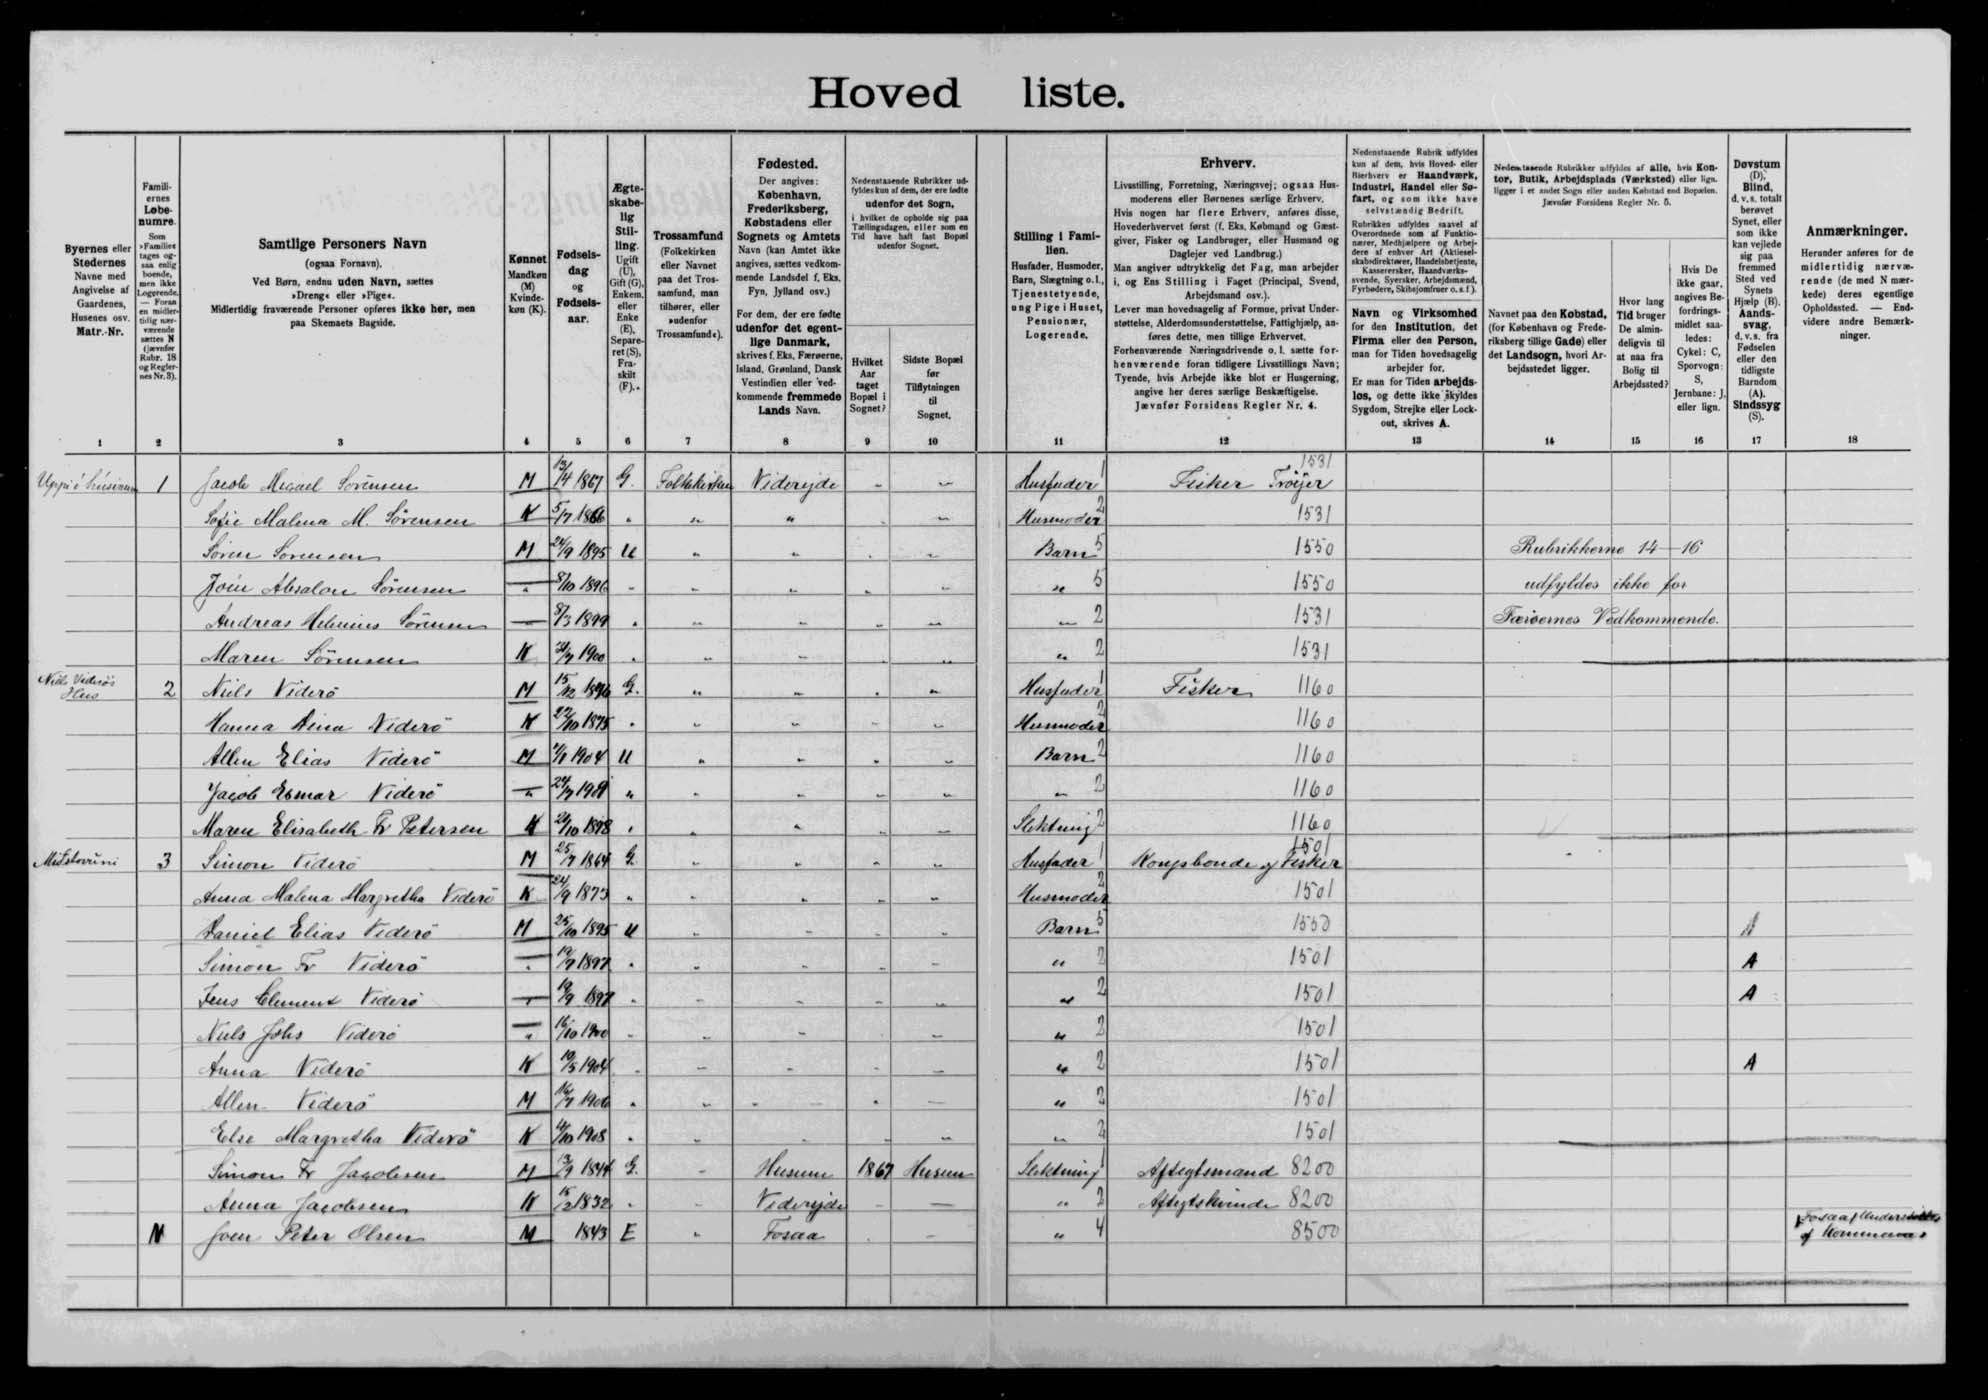 Hoved liste.
Byernes eller
Stedernes
Navne med
Angivelse af
Gaardenes,
Husenes osv.
Matr.-Nr.
1
Famili-
ernes
Løbe-
numre.
Som
»Familie«
tages og-
saa enlig
boende,
men ikke
Logerende.
— Foran
en midler-
tidig nær-
værende
sættes N
(jævnfør
Rubr. 18
og Regler-
nes Nr. 3).
2
Samtlige Personers Navn
(ogsaa Fornavn).
Ved Børn, endnu uden Navn, sættes
»Dreng« eller »Pige«.
Midlertidig fraværende Personer opføres ikke her, men
paa Skemaets Bagside.
3
Kønnet
Mandkøn
(M)
Kvinde-
køn (K).
4
Fødsels-
dag
og
Fødsels-
aar.
5
Ægte-
skabe-
lig
Stil-
ling.
Ugift
(U),
Gift (G),
Enkem.
eller
Enke
(E),
Separe-
ret (S),
Fra-
skilt
(F).
6
Trossamfund
(Folkekirken
eller Navnet
paa det Tros-
samfund, man
tilhører, eller
»udenfor
Trossamfund«).
7
Fødested.
Der angives:
København,
Frederiksberg,
Købstadens eller
Sognets og Amtets
Navn (kan Amtet ikke
angives, sættes vedkom-
mende Landsdel f. Eks.
Fyn, Jylland osv.)
For dem, der ere fødte
udenfor det egent-
lige Danmark,
skrives f. Eks. Færøerne,
Island, Grønland, Dansk
Vestindien eller ved-
kommende fremmede
Lands Navn.
8
Nedenstaaende Rubrikker ud-
fyldes kun af dem, der ere fødte
udenfor det Sogn,
i hvilket de opholde sig paa
Tællingsdagen, eller som en
Tid have haft fast Bopæl
udenfor Sognet.
Hvilket
Aar
taget
Bopæl i
Sognet?
9
Sidste Bopæl
før
Tilflytningen
til
Sognet.
10
Stilling i Fami-
lien.
Husfader, Husmoder,
Barn, Slægtning o. l.,
Tjenestetyende,
ung Pige i Huset,
Pensionær,
Logerende.
11
Erhverv.
Livsstilling, Forretning, Næringsvej; ogsaa Hus-
moderens eller Børnenes særlige Erhverv.
Hvis nogen har flere Erhverv, anføres disse,
Hovederhvervet først (f. Eks. Købmand og Gæst-
giver, Fisker og Landbruger, eller Husmand og
Daglejer ved Landbrug.)
Man angiver udtrykkelig det Fag, man arbejder
i, og Ens Stilling i Faget (Principal, Svend,
Arbejdsmand osv.).
Lever man hovedsagelig af Formue, privat Under-
støttelse, Alderdomsunderstøttelse, Fattighjælp, an-
føres dette, men tillige Erhvervet.
Forhenværende Næringsdrivende o. l. sætte for-
henværende foran tidligere Livsstillings Navn;
Tyende, hvis Arbejde ikke blot er Husgerning,
angive her deres særlige Beskæftigelse.
Jævnfør Forsidens Regler Nr. 4.
12
Nedenstaaende Rubrik udfyldes
kun af dem, hvis Hoved- eller
Bierhverv er Haandværk,
Industri, Handel eller Sø-
fart, og som ikke have
selvstændig Bedrift.
Rubrikken udfyldes saavel af
Overordnede som af Funktio-
nærer, Medhjælpere og Arbej-
dere af enhver Art (Aktiesel-
skabsdirektører, Handelsbetjente,
Kasserersker, Haandværks-
svende, Syersker, Arbejdsmænd,
Fyrbødere, Skibsjomfruer o. s. f.).
Navn og Virksomhed
for den Institution, det
Firma eller den Person,
man for Tiden hovedsagelig
arbejder for.
Er man for Tiden arbejds-
løs, og dette ikke skyldes
Sygdom, Strejke eller Lock-
out, skrives A.
13
Nedenstaaende Rubrikker udfyldes af alle, hvis Kon-
tor, Butik, Arbejdsplads (Værksted) eller lign.
ligger i et andet Sogn eller anden Købstad end Bopælen.
Jævnfør Forsidens Regler Nr. 5.
Navnet paa den Købstad,
(for København og Frede-
riksberg tillige Gade) eller
det Landsogn, hvori Ar-
bejdsstedet ligger.
14
Hvor lang
Tid bruger
De almin-
deligvis til
at naa fra
Bolig til
Arbejdssted?
15
Hvis De
ikke gaar,
angives Be-
fordrings-
midlet saa-
ledes:
Cykel: C,
Sporvogn:
S,
Jernbane: J,
eller lign.
16
Døvstum
(D),
Blind,
d. v. s. totalt
berøvet
Synet, eller
som ikke
kan vejlede
sig paa
fremmed
Sted ved
Synets
Hjælp (B).
Aands-
svag,
d. v. s. fra
Fødselen
eller den
tidligste
Barndom
(A).
Sindssyg
(S).
17
Anmærkninger.
Herunder anføres for de
midlertidig nærvæ-
rende (de med N mær-
kede) deres egentlige
Opholdssted. — End-
videre andre Bemærk-
ninger.
18
1 Jacob Micael Sörensen M 13/4 1867 G. Folkekirken Viderejde " " Husfader 1 Fisker 1531
Sofie Malena M. Sörensen K 5/7 1866 " " " " " Husmoder 2 1531
Sören Sörensen M 24/9 1895 U " " " " Barn 5 1550 Rubrikkerne 14—16
Joen Absalon Sörensen " 8/10 1896 " " " " " " 5 1550 udfyldes ikke for
Andreas Sörensen 8/3 1899 " " " " " " 2 1531 Færøernes Vedkommende.
Maren Sörensen K 1900 " " " " " " 2 1531
Niels Viderö's Hus 2 Niels Viderö M 15/12 G. " " " " Husfader 1 Fisker 1160
Hanna Viderö K 27/10 1875 " " " " " Husmoder 2 1160
Allen Elias Viderö M 1904 U " " " " Barn 2 1160
Jacob Esmar Viderö " " " " " " " " 2 1160
Maren Elisabeth Fr Petersen K 1898 " " " " " Slektning 2 1160
3 Simon Viderö M 25/7 1864 G. " " " " Husfader 1 Kongsbonde og Fisker 1501
Anna Malena Margretha Viderö K 24/9 1873 " " " " " Husmoder 2 1501
Daniel Elias Viderö M 25/10 1895 U " " " " Barn 5 1550 A
Simon Fr Viderö " 1897 " " " " " " 2 1501 A
Jens Clement Viderö " 19/9 1897 " " " " " " 2 1501 A
Niels Johs Viderö " 16/10 1900 " " " " " " 2 1501
Anna Viderö K 19/5 1904 " " " " " " 2 1501 A
Allen Viderö M 16/7 1906 " " " " " " 2 1501
Else Margretha Viderö K 1908 " " " " " " 2 1501
Simon Fr Jacobsen M 13/9 1844 G. " Husum 1867 Husum Slektning 1 Aftegtsmand 8200
Anna Jacobsen K 15/2 1832 " " Viderejde " — " 2 Aftegtskvinde 8200
N Joen Peter Olsen M 1843 E " Fosaa " " " 4 8500 Fosaa,
af Kommunen